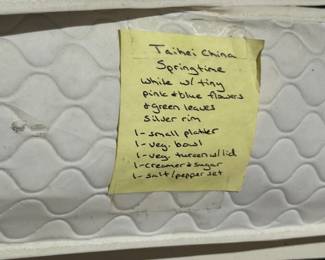 Taihei China
Springtime
white w/ tiny
pink & blue flowers
& green leaves
silver rim
1-small platter
1-veg. bowl
1-veg. tureen w/ lid
1-creamer & sugar
1-salt/pepper set